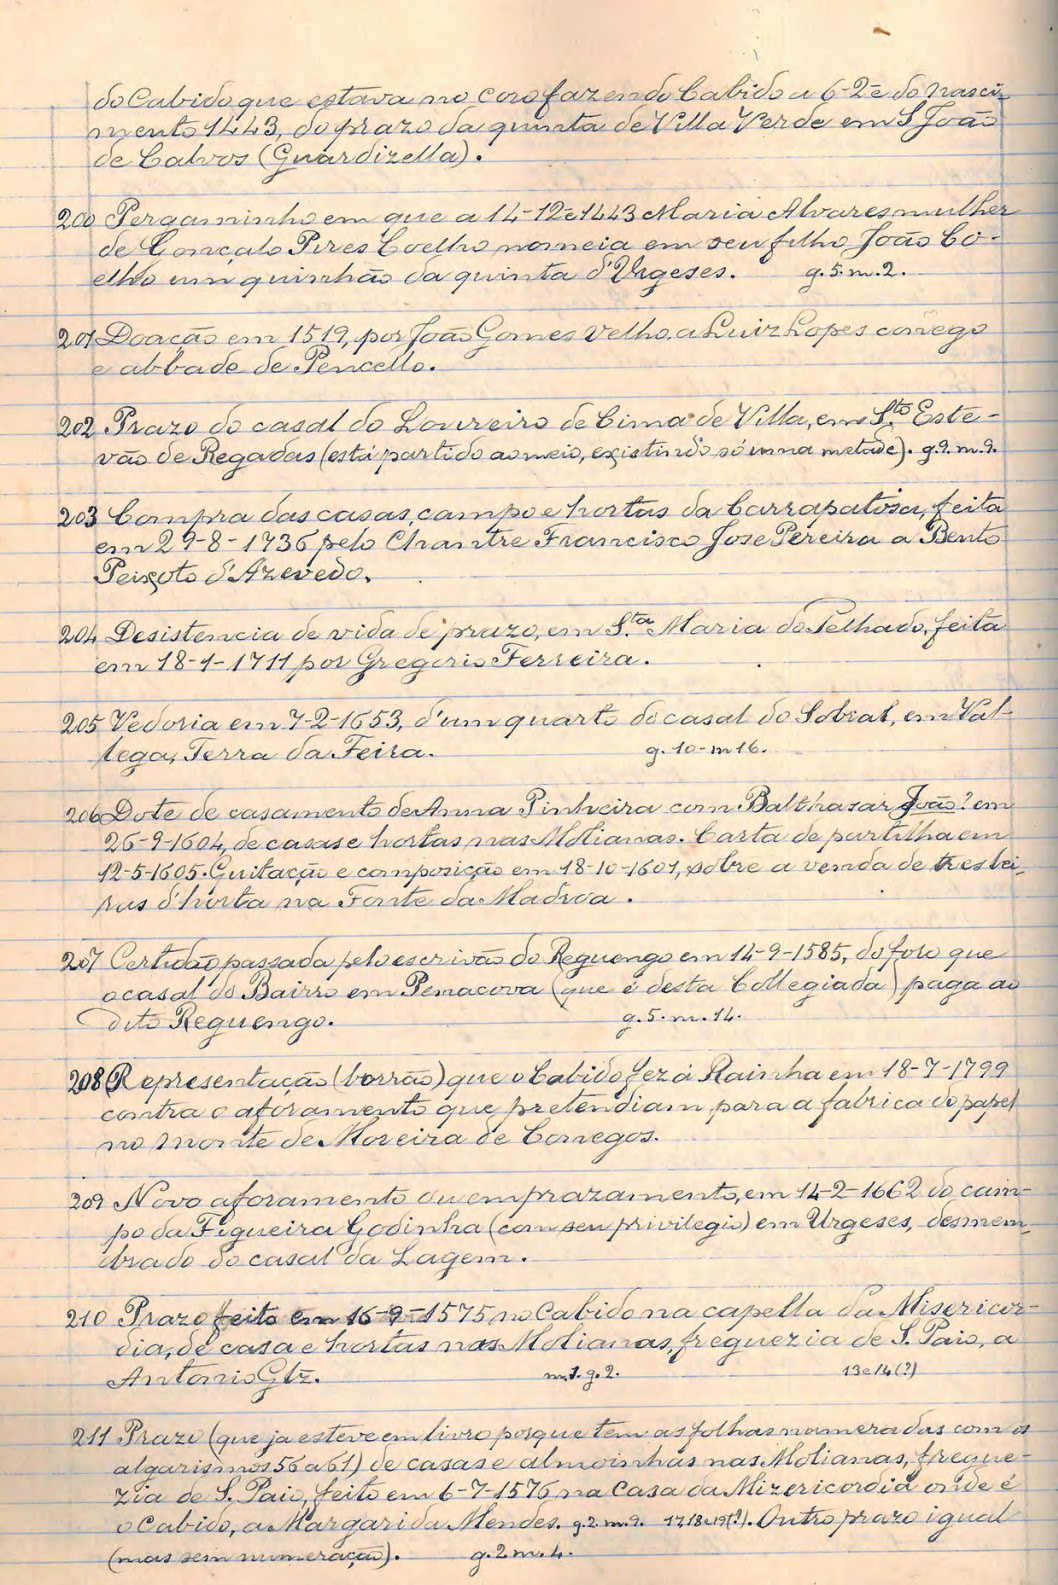 do Cabido que estava no coro fazendo Cabido a 6-2º do nasci-
mento 1443, do prazo da quinta de Villa Verde em S João
de Calvos (Guardizella).
200 Pergaminho em que a 14-12º 1443 Maria Alvares mulher
de Gonçalo Pires Coelho nomeia em seu filho João Co-
elho um quinhão da quinta d'Urgeses. g. 5. m. 2.
201 Doação em 1519, por João Gomes Velho a Luiz Lopes conego
e abbade de Pencello.
202 Prazo do casal do Loureiro de Cima de Villa, em S.to Este-
vão de Regadas (está partido ao meio, existindo só uma metade). g. 9. m. 9.
203 Compra das casas, campo e hortas da Carrapatosa, feita
em 29-8-1736 pelo Chantre Francisco José Pereira a Bento
Peixoto d'Azevedo.
204 Desistencia de vida de prazo, em S.ta Maria do Telhado, feita
em 18-1-1711 por Gregorio Ferreira.
205 Vedoria em 7-2-1653, d'um quarto do casal do Sobral, em Val-
lega, Terra da Feira. g. 10-m 16.
206 Dote de casamento de Anna Pinheira com Balthasar João? em
26-9-1604, de casas e hortas nas Molianas. Carta de partilha em
12-5-1605. Quitação e composição em 18-10-1601, sobre a venda de tres lei-
ras d'horta na Fonte da Madroa.
207 Certidão passada pelo escrivão do Reguengo em 14-9-1585, do foro que
o casal do Bairro em Penacova (que é desta Collegiada) paga ao
dito Reguengo. g. 5. m. 14.
208 Representação (borrão) que o Cabido fez á Rainha em 18-7-1799
contra o aforamento que pretendiam para a fabrica do papel
no monte de Moreira de Conegos.
209 Novo aforamento ou emprazamento, em 14-2-1662 do cam-
po da Figueira Godinha (com seu privilegio) em Urgeses, desmem-
brado do casal da Lagem.
210 Prazo feito em 16-9-1575, no Cabido na capella da Misericor-
dia, de casa e hortas nas Molianas, freguezia de S. Paio, a
Antonio Glz. m. 1. g. 2. 13 e 14 (?)
211 Prazo (que ja esteve em livro porque tem as folhas numeradas com os
algarismos 56 a 61) de casas e almoinhas nas Molianas, fregue-
zia de S. Paio, feito em 6-7-1576 na Casa da Mizericordia onde é
o Cabido, a Margarida Mendes. g. 2 m. 9. 17, 18 e 19 (?). Outro prazo igual
(mas sem numeração). g. 2 m. 4.